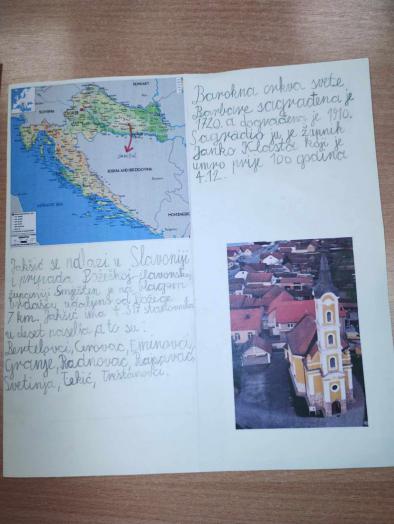 HUNGARY
SLOVENIA
BOSNIA AND HERZEGOVINA
ADRIATIC SEA
JAKŠIĆ
Barokna crkva svete
Barbare sagrađena je
1720. a dograđena je 1910.
Sagradio ju je župnik
Janko Klasta koji je
umro prije 100 godina
4.12.
Jakšić se nalazi u Slavoniji
i pripada Požeškoj-slavonskoj
županiji Smješten je na
udaljeno od Požege
7 km. Jakšić ima 4 317 stanovnika
u deset naselja a to su:
Bertelovci, Cerovac, Eminovci,
Granje, Radnovac, Rajsavac
Svetinja, Tekić, Treštanovci.